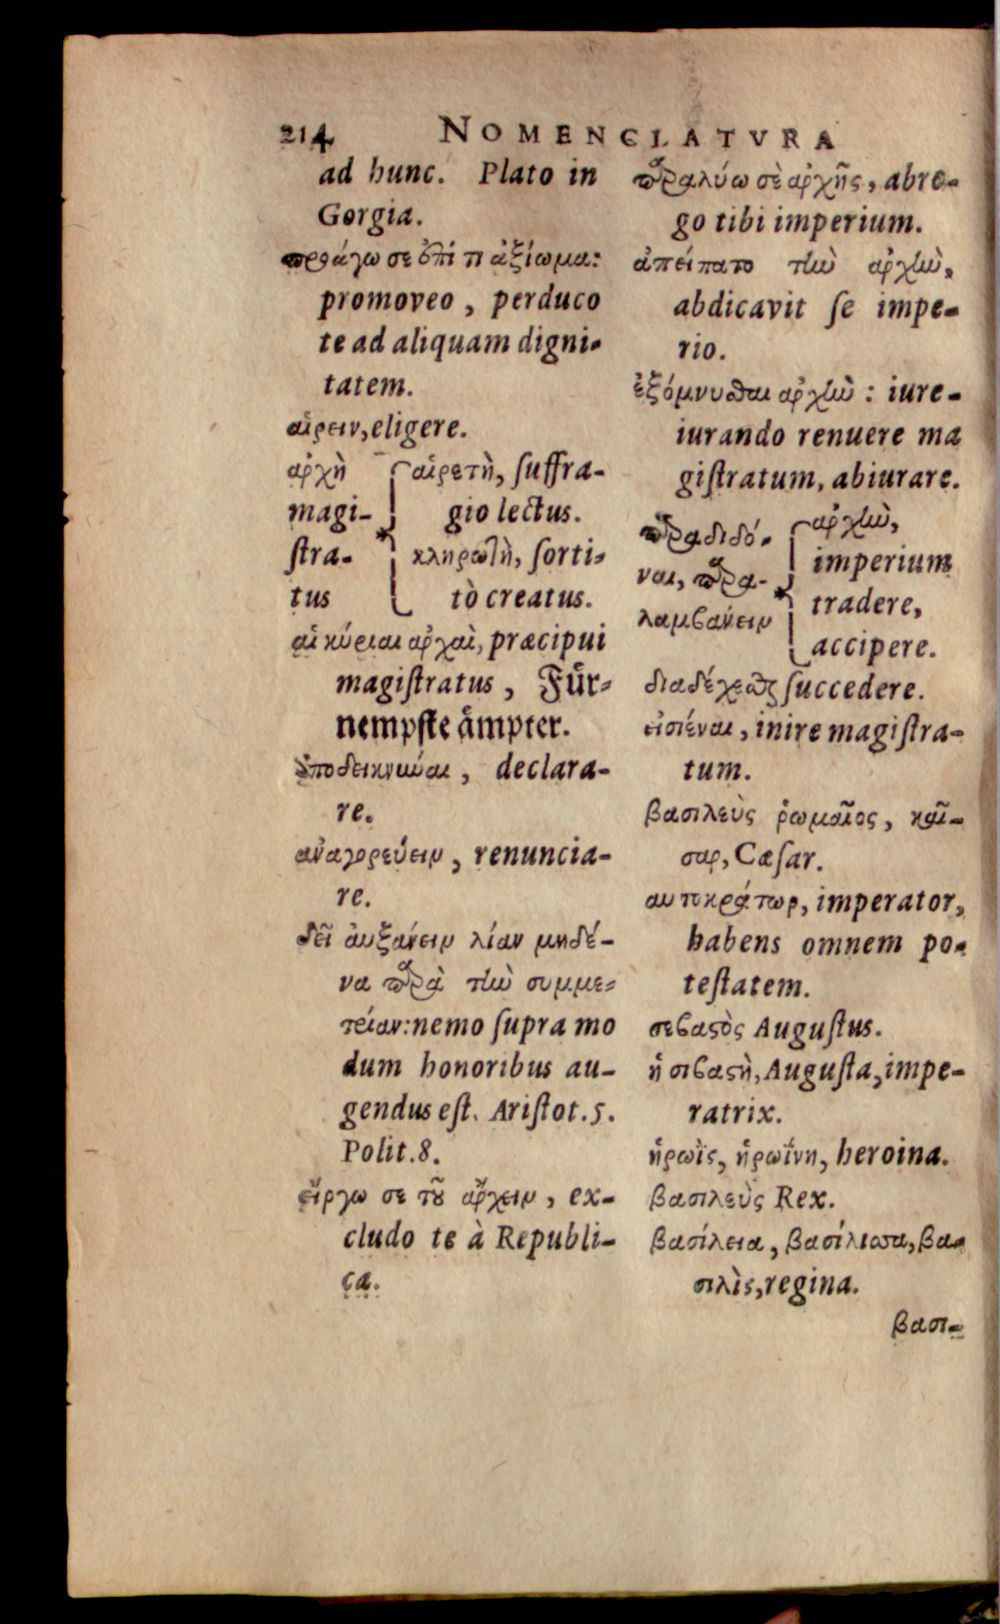 214 NOMENCLATVRA
ad hunc. Plato in
Gorgia.
προάγω σε ἐπί τι ἀξίωμα:
promoveo, perduco
te ad aliquam digni-
tatem.
αἱρειν, eligere.
ἀρχὴ αἱρετὴ, ſuffra-
magi- gio lectus.
ſtra- κληρωτὴ, ſorti-
tus tò creatus.
αἱ κύριαι ἀρχαὶ, præcipui
magiſtratus, Für-
nempſte ämpter.
ὑποδεικνύναι, declara-
re.
ἀναγορεύειν, renuncia-
re.
δεῖ ἀυξάνειν λίαν μηδέ-
να παρὰ τὴν συμμε-
τείαν: nemo ſupra mo
dum honoribus au-
gendus eſt. Ariſtot. 5.
Polit. 8.
εἴργω σε τοῦ ἄρχειν, ex-
cludo te à Republi-
ca.
παραλύω σὲ ἀρχῆς, abro-
go tibi imperium.
ἀπείπατο τὴν ἀρχὴν,
abdicavit ſe impe-
rio.
ἐξόμνυσθαι ἀρχὴν: iure-
iurando renuere ma
giſtratum, abiurare.
παραδιδό- ἀρχὴν,
ναι, παρα- imperium
λαμβάνειν tradere,
accipere.
διαδέχεσθαι ſuccedere.
εἰσιέναι, inire magiſtra-
tum.
βασιλεὺς ῥωμαῖος, καῖ-
σαρ, Cæſar.
αυτοκράτωρ, imperator,
habens omnem po-
teſtatem.
σεβαστὸς Auguſtus.
ἡ σιβαστὴ, Auguſta, impe-
ratrix.
ἡρωῒς, ἡρωΐνη, heroina.
βασιλεὺς Rex.
βασίλεια, βασίλισσα, βα-
σιλὶς, regina.
βασι-